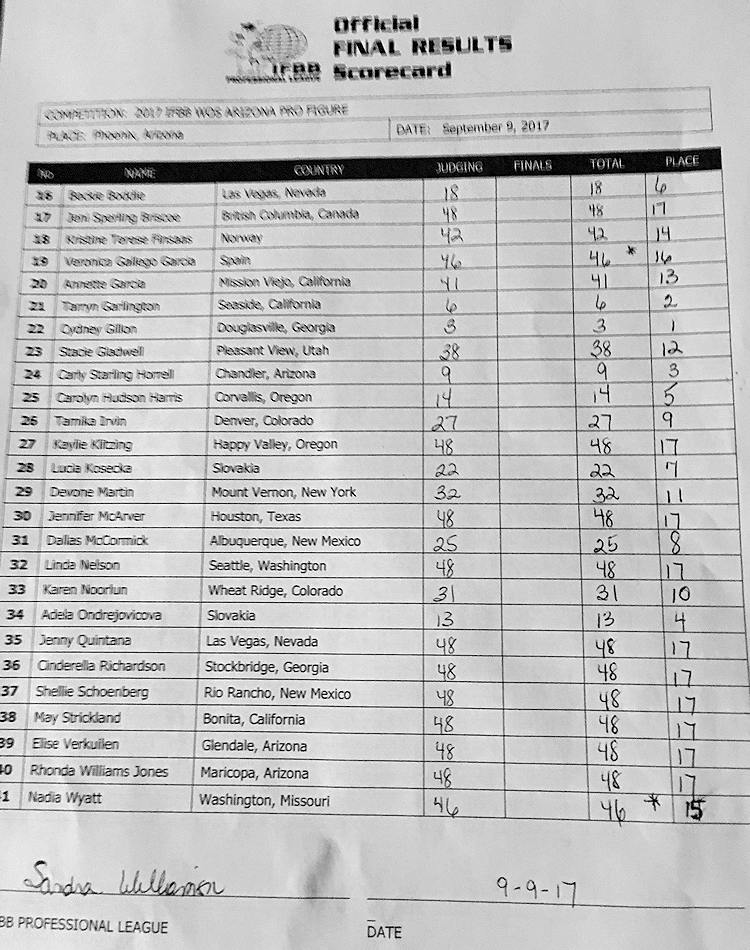 Official
FINAL RESULTS
IFBB Scorecard
PROFESSIONAL LEAGUE
COMPETITION: 2017 IFBB WOS ARIZONA PRO FIGURE
PLACE: Phoenix, Arizona DATE: September 9, 2017
No NAME COUNTRY JUDGING FINALS TOTAL PLACE
16 Beckie Boddie Las Vegas, Nevada 18 18 6
17 Jeni Sperling Briscoe British Columbia, Canada 48 48 17
18 Kristine Terese Finsaas Norway 42 42 14
19 Veronica Gallego Garcia Spain 46 46 * 16
20 Annette Garcia Mission Viejo, California 41 41 13
21 Tarryn Garlington Seaside, California 6 6 2
22 Cydney Gillon Douglasville, Georgia 3 3 1
23 Stacie Gladwell Pleasant View, Utah 38 38 12
24 Carly Starling Horrell Chandler, Arizona 9 9 3
25 Carolyn Hudson Harris Corvallis, Oregon 14 14 5
26 Tamika Irvin Denver, Colorado 27 27 9
27 Kaylie Kitzing Happy Valley, Oregon 48 48 17
28 Lucia Kosecka Slovakia 22 22 7
29 Devone Martin Mount Vernon, New York 32 32 11
30 Jennifer McArver Houston, Texas 48 48 17
31 Dallas McCormick Albuquerque, New Mexico 25 25 8
32 Linda Nelson Seattle, Washington 48 48 17
33 Karen Noorlun Wheat Ridge, Colorado 31 31 10
34 Adela Ondrejovicova Slovakia 13 13 4
35 Jenny Quintana Las Vegas, Nevada 48 48 17
36 Cinderella Richardson Stockbridge, Georgia 48 48 17
37 Shellie Schoenberg Rio Rancho, New Mexico 48 48 17
38 May Strickland Bonita, California 48 48 17
39 Elise Verkuilen Glendale, Arizona 48 48 17
40 Rhonda Williams Jones Maricopa, Arizona 48 48 17
1 Nadia Wyatt Washington, Missouri 46 46 * 15
Sandra Williamson 9-9-17
BB PROFESSIONAL LEAGUE DATE